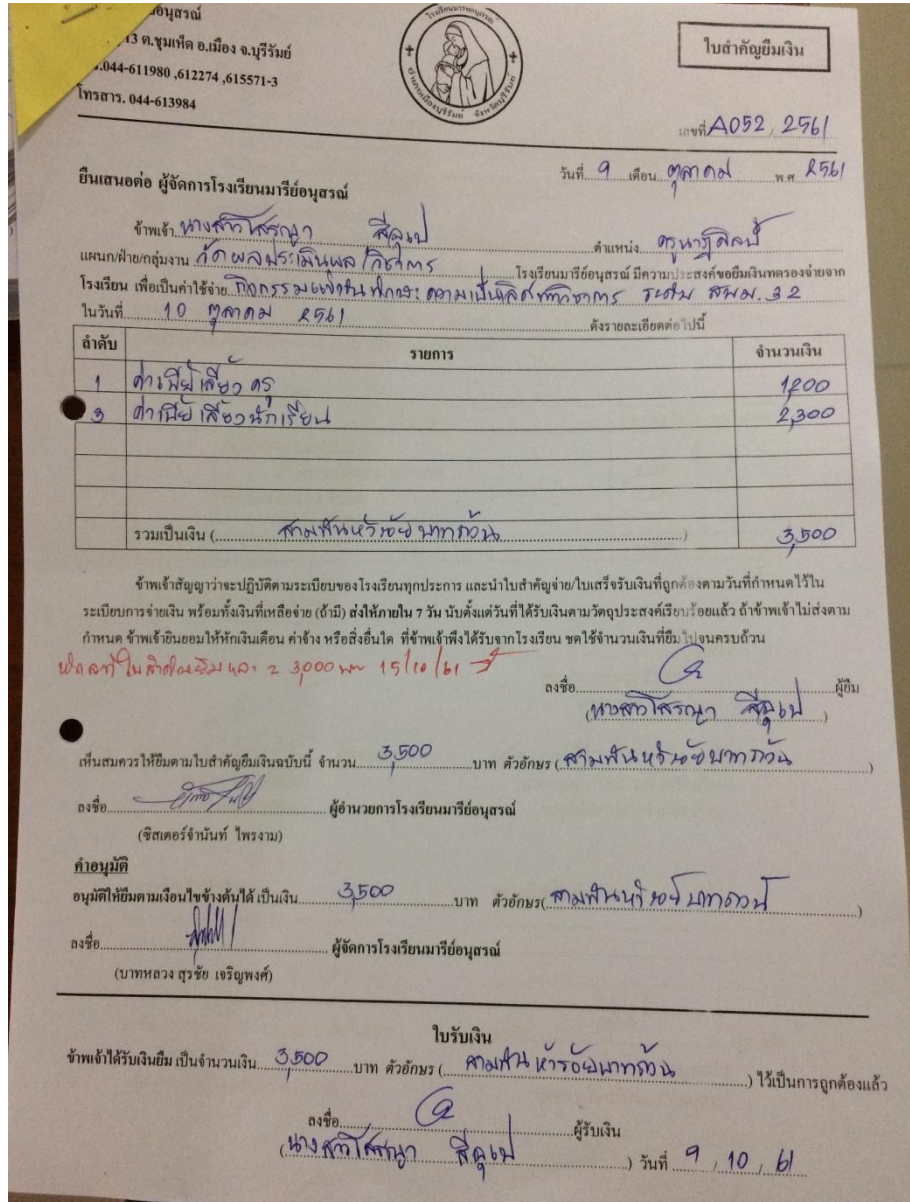 อนุสรณ์
13 ต.ชุมเห็ด อ.เมือง จ.บุรีรัมย์
.044-611980 ,612274 ,615571-3
โทรสาร. 044-613984
ใบสำคัญยืมเงิน
เลขที่ A052, 2561
วันที่ 9 เดือน ตุลาคม พ.ศ. 2561
ยืนเสนอต่อ ผู้จัดการโรงเรียนมารีย์อนุสรณ์
ข้าพเจ้า นางสาวโสรญา สีดุเป ตำแหน่ง ครูนาฏศิลป์
แผนก/ฝ่าย/กลุ่มงาน วัดผลประเมินผล/วิชาการ โรงเรียนมารีย์อนุสรณ์ มีความประสงค์ขอยืมเงินทดรองจ่ายจาก
โรงเรียน เพื่อเป็นค่าใช้จ่าย กิจกรรมแข่งขันทักษะความเป็นเลิศทางวิชาการ ระดับ สพม. 32
ในวันที่ 10 ตุลาคม 2561 ดังรายละเอียดต่อไปนี้
ลำดับ รายการ จำนวนเงิน
1 ค่าเบี้ยเลี้ยงครู 1200
3 ค่าเบี้ยเลี้ยงนักเรียน 2,300
รวมเป็นเงิน ( สามพันห้าร้อยบาทถ้วน ) 3,500
ข้าพเจ้าสัญญาว่าจะปฏิบัติตามระเบียบของโรงเรียนทุกประการ และนำใบสำคัญจ่าย/ใบเสร็จรับเงินที่ถูกต้องตามวันที่กำหนดไว้ใน
ระเบียบการจ่ายเงิน พร้อมทั้งเงินที่เหลือจ่าย (ถ้ามี) ส่งให้ภายใน 7 วัน นับตั้งแต่วันที่ได้รับเงินตามวัตถุประสงค์เรียบร้อยแล้ว ถ้าข้าพเจ้าไม่ส่งตาม
กำหนด ข้าพเจ้ายินยอมให้หักเงินเดือน ค่าจ้าง หรือสิ่งอื่นใด ที่ข้าพเจ้าพึงได้รับจากโรงเรียน ชดใช้จำนวนเงินที่ยืมไปจนครบถ้วน
3,000 15/10/61
ลงชื่อ ผู้ยืม
(นางสาวโสรญา สีดุเป)
เห็นสมควรให้ยืมตามใบสำคัญยืมเงินฉบับนี้ จำนวน 3,500 บาท ตัวอักษร ( สามพันห้าร้อยบาทถ้วน )
ลงชื่อ ผู้อำนวยการโรงเรียนมารีย์อนุสรณ์
(ซิสเตอร์จำนันท์ ไพรงาม)
คำอนุมัติ
อนุมัติให้ยืมตามเงื่อนไขข้างต้นได้ เป็นเงิน 3,500 บาท ตัวอักษร( สามพันห้าร้อยบาทถ้วน )
ลงชื่อ ผู้จัดการโรงเรียนมารีย์อนุสรณ์
(บาทหลวง สุรชัย เจริญพงศ์)
ใบรับเงิน
ข้าพเจ้าได้รับเงินยืม เป็นจำนวนเงิน 3,500 บาท ตัวอักษร ( สามพันห้าร้อยบาทถ้วน ) ไว้เป็นการถูกต้องแล้ว
ลงชื่อ ผู้รับเงิน
(นางสาวโสรญา สีดุเป) วันที่ 9 / 10 / 61